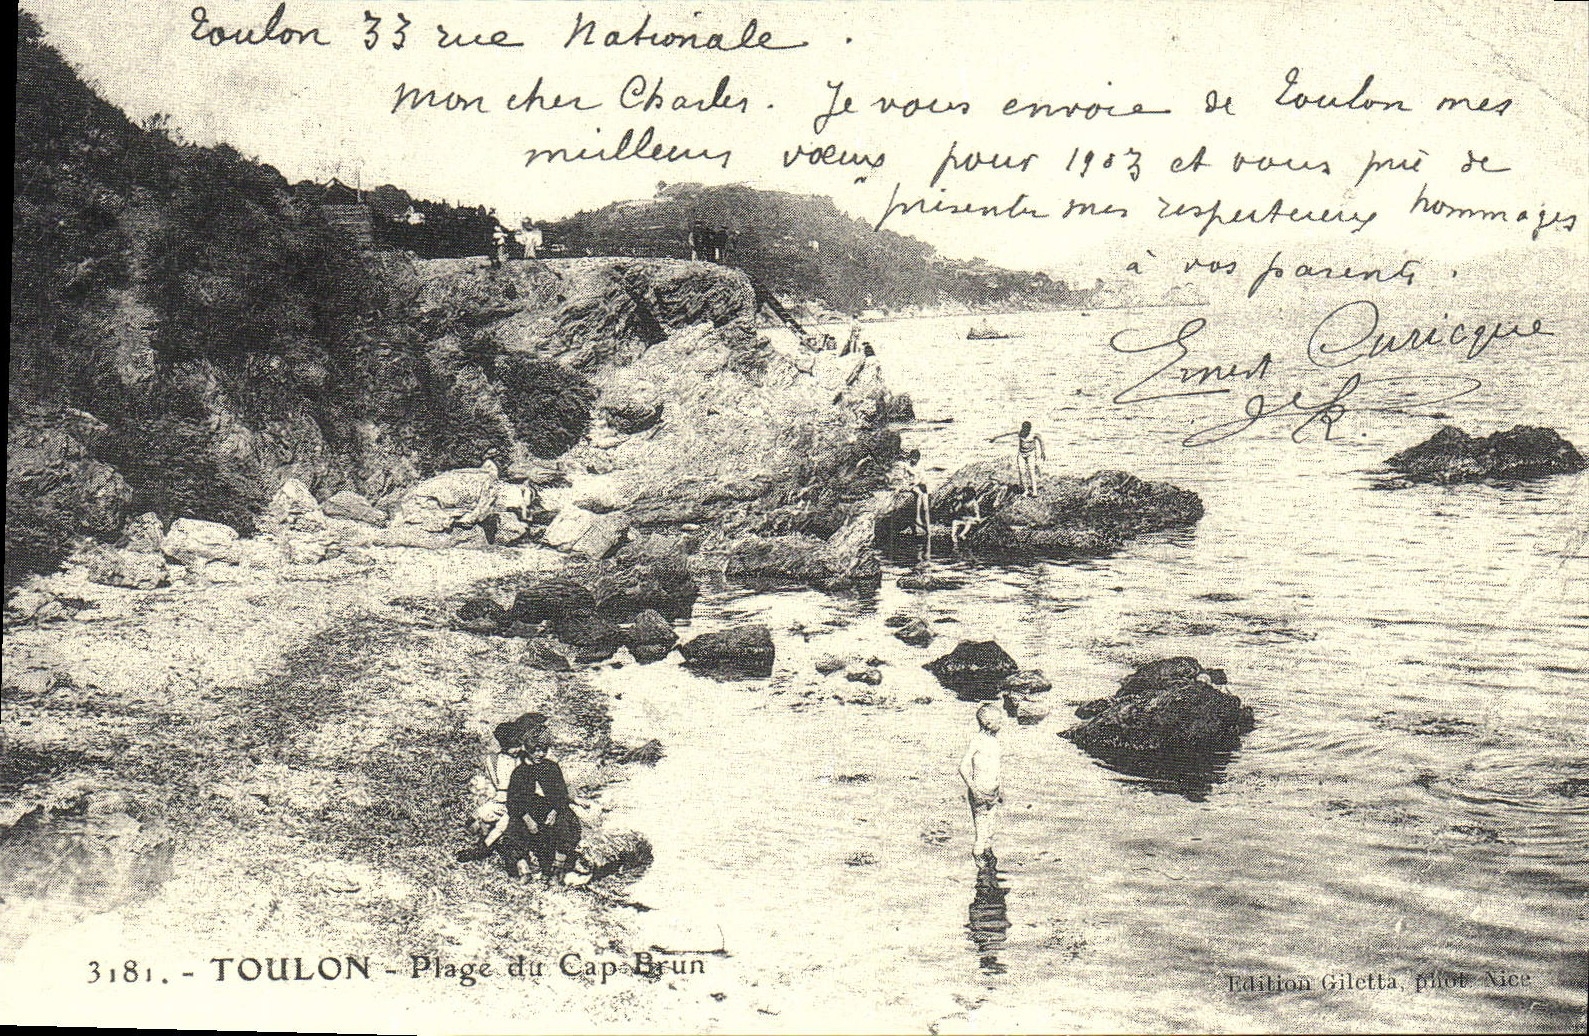 Toulon 33 rue Nationale.
Mon cher Charles. Je vous envoie de Toulon mes
meilleurs vœux pour 1903 et vous prie de
présenter mes respectueux hommages
à vos parents.
Ernest Curicque
3181. - TOULON - Plage du Cap Brun
Edition Giletta, phot. Nice